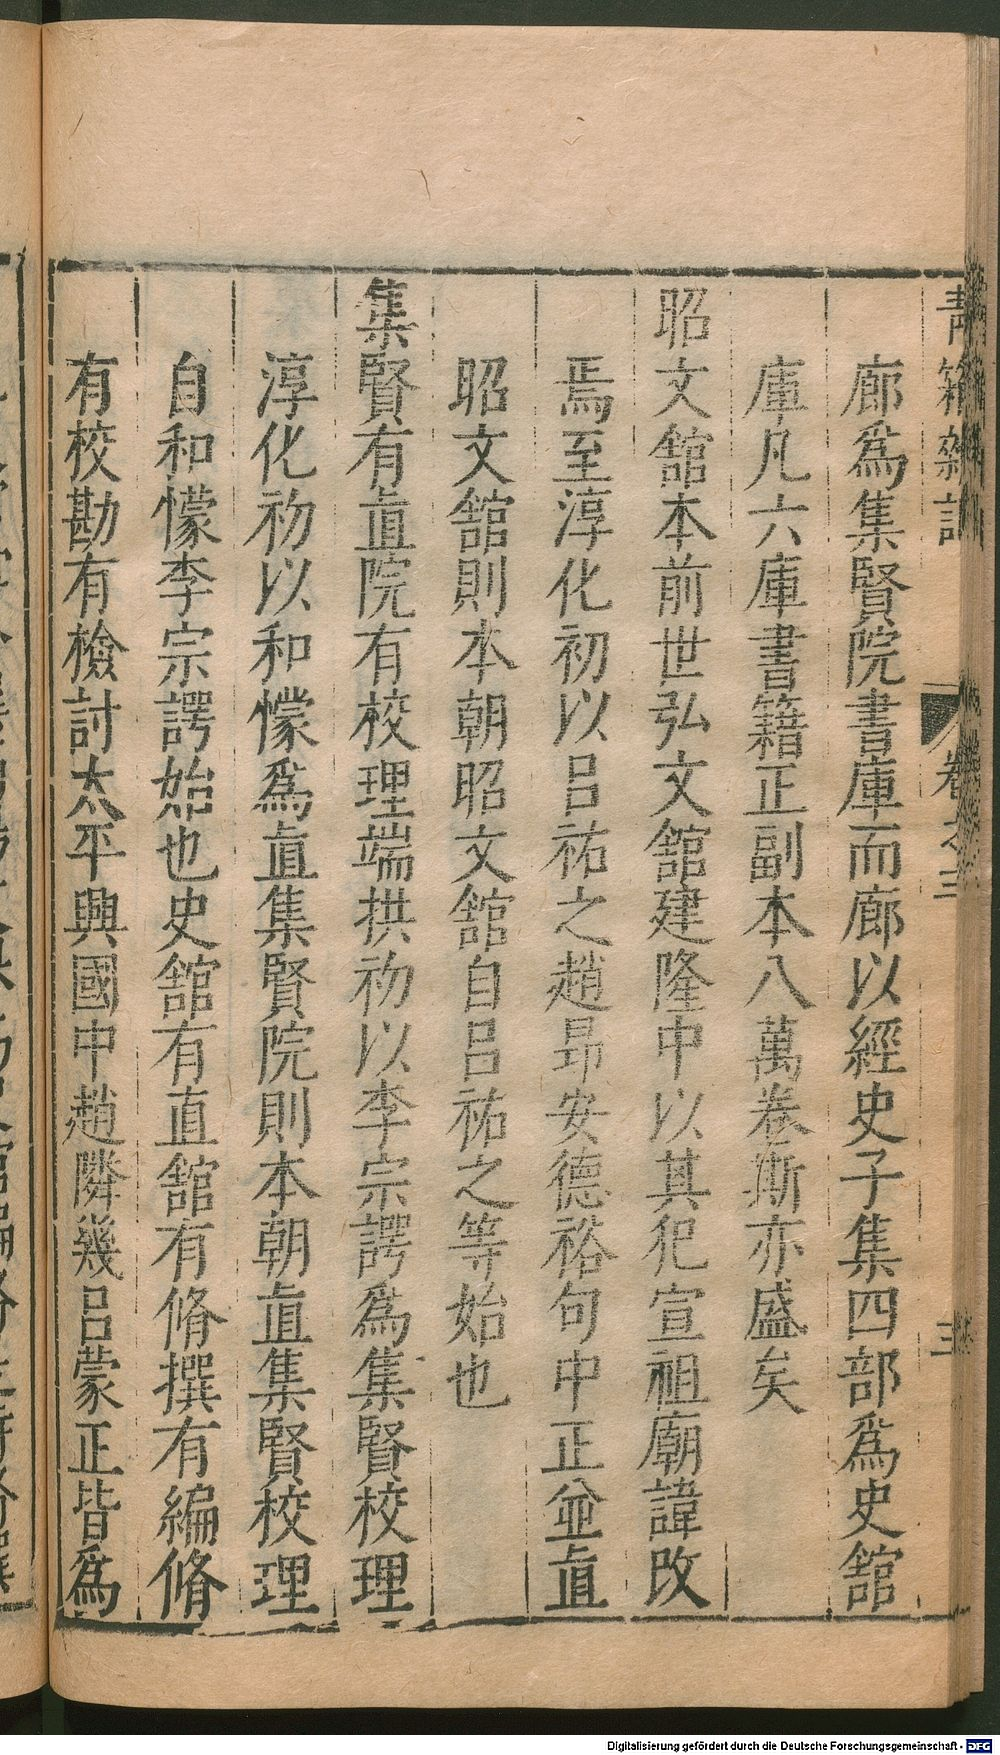 青箱雜記
卷之三
三
廊爲集賢院書庫而廊以經史子集四部爲史舘
庫凡六庫書籍正副本八萬卷斯亦盛矣
昭文舘本前世弘文舘建隆中以其犯宣祖廟諱改
焉至淳化初以呂祐之趙昻安德裕句中正並直
昭文舘則本朝昭文舘自呂祐之等始也
集賢有直院有校理端拱初以李宗諤爲集賢校理
淳化初以和㠓爲直集賢院則本朝直集賢校理
自和㠓李宗諤始也史舘有直舘有脩撰有編脩
有校勘有檢討太平興國中趙隣幾呂蒙正皆爲
Digitalisierung gefördert durch die Deutsche Forschungsgemeinschaft - DFG